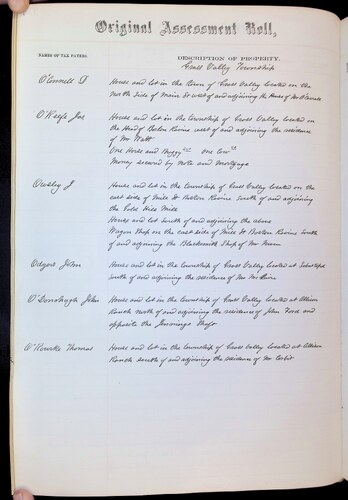 Original Assessment Roll,
NAMES OF TAX PAYERS.
DESCRIPTION OF PROPERTY.
Grass Valley Township
O'Connell D
House and lot in the Town of Grass Valley located on the
North side of Main St west of and adjoining the House of Mr
O'Keefe Joe
House and lot in the Township of Grass Valley located on
the Head of Boston Ravine west of and adjoining the residence
of Mr Watt
One Horse and Buggy One Cow
Money secured by note and mortgage
J
House and lot in the Township of Grass Valley located on the
east side of Mill St Boston Ravine south of and adjoining
the Gold Hill Mill
House and lot south of and adjoining the above
Wagon Shop on the east side of Mill St Boston Ravine south
of and adjoining the Blacksmith Shop of Mr
Odgers John
House and lot in the Township of Grass Valley located at
south of and adjoining the residence of Mr
O'Donohugh John
House and lot in the Township of Grass Valley located at Allison
Ranch north of and adjoining the residence of John Ford and
opposite the Jennings Shop
O'Rourke Thomas
House and lot in the Township of Grass Valley located at Allison
Ranch south of and adjoining the residence of Mr Corbit